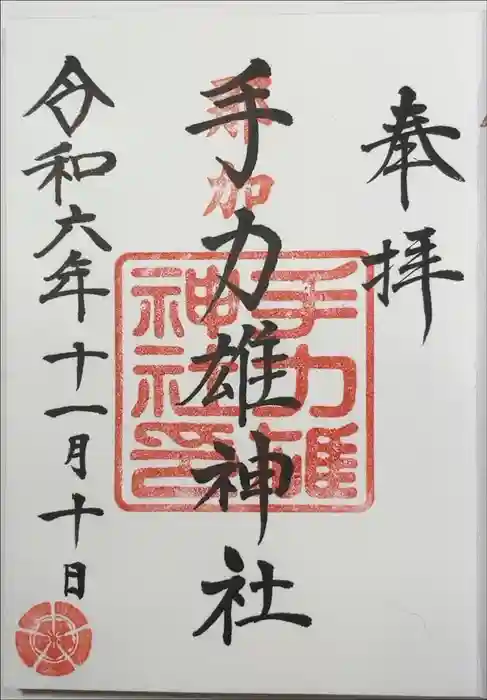 奉拝
手力雄神社
那加
手力雄
神社印
令和六年十一月十日